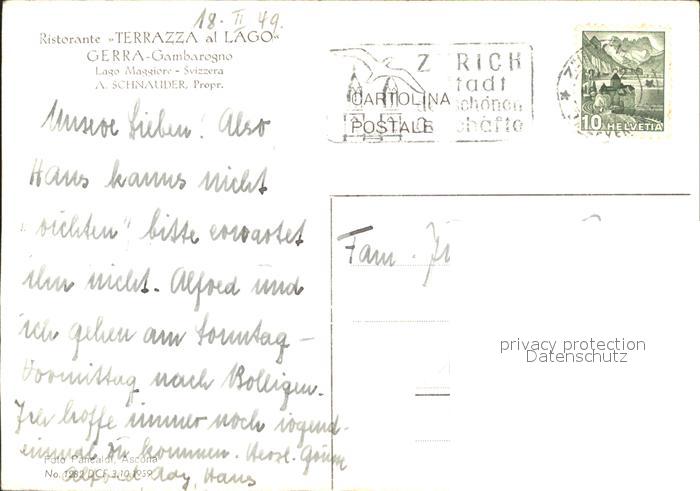 18. II 49.
Ristorante »TERRAZZA al LAGO«
GERRA-Gambarogno
Lago Maggiore - Svizzera
A. SCHNAUDER, Propr.
Unsere Lieben! Also
Hans kanns nicht
„richten“, bitte erwartet
ihn nicht. Alfred und
ich gehen am Sonntag-
Vormittag nach Bolligen.
Ich hoffe immer noch irgend-
einmal zu kommen. Herzl.
Alfred, Hans
Foto Pancaldi, Ascona
No. 1282 DCF 3.10.1939
ZÜRICH
Stadt
schönen
CARTOLINA
POSTALE
10 HELVETIA
Fam.
privacy protection
Datenschutz